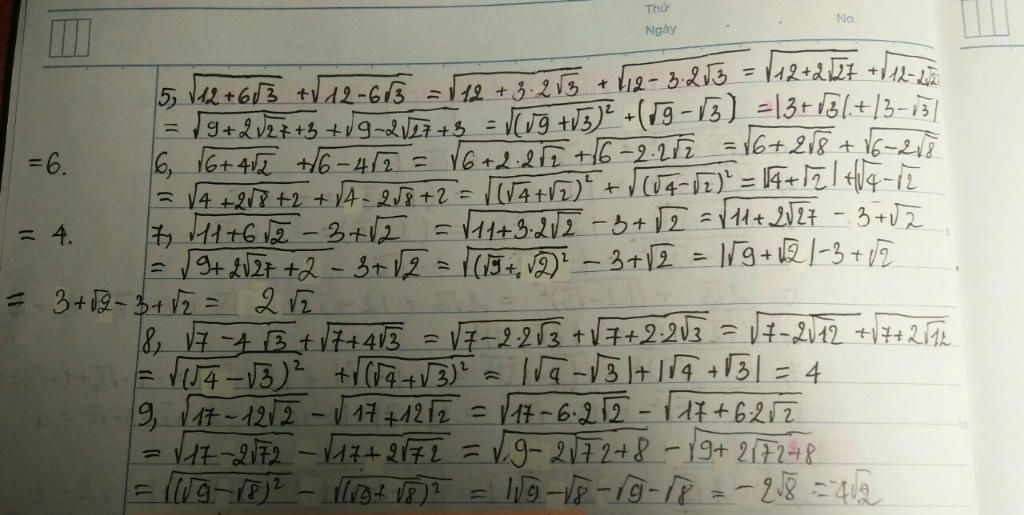 Thứ
Ngày
No.
5, √(12+6√3) + √(12-6√3) = √(12+3·2√3) + √(12-3·2√3) = √(12+2√27) + √(12-2√2
= √(9+2√27+3) + √(9-2√27+3) = √((√9+√3)²) + (√9-√3) = |3+√3|.+|3-√3|
=6.
6, √(6+4√2) + √(6-4√2) = √(6+2·2√2) + √(6-2·2√2) = √(6+2√8) + √(6-2√8)
= √(4+2√8+2) + √(4-2√8+2) = √((√4+√2)²) + √((√4-√2)²) = |√4+√2|+|√4-√2
= 4.
7, √(11+6√2) -3+√2 = √(11+3·2√2) -3+√2 = √(11+2√27) -3+√2
= √(9+2√27+2) -3+√2 = √((√9+√2)²) -3+√2 = |√9+√2|-3+√2
= 3+√2-3+√2 = 2√2
8, √(7-4√3) + √(7+4√3) = √(7-2·2√3) + √(7+2·2√3) = √(7-2√12) + √(7+2√12)
= √((√4-√3)²) + √((√4+√3)²) = |√4-√3|+|√4+√3| = 4
9, √(17-12√2) - √(17+12√2) = √(17-6·2√2) - √(17+6·2√2)
= √(17-2√72) - √(17+2√72) = √(9-2√72+8) - √(9+2√72+8)
= √((√9-√8)²) - √((√9+√8)²) = |√9-√8-√9-√8 = -2√8 = -4√2